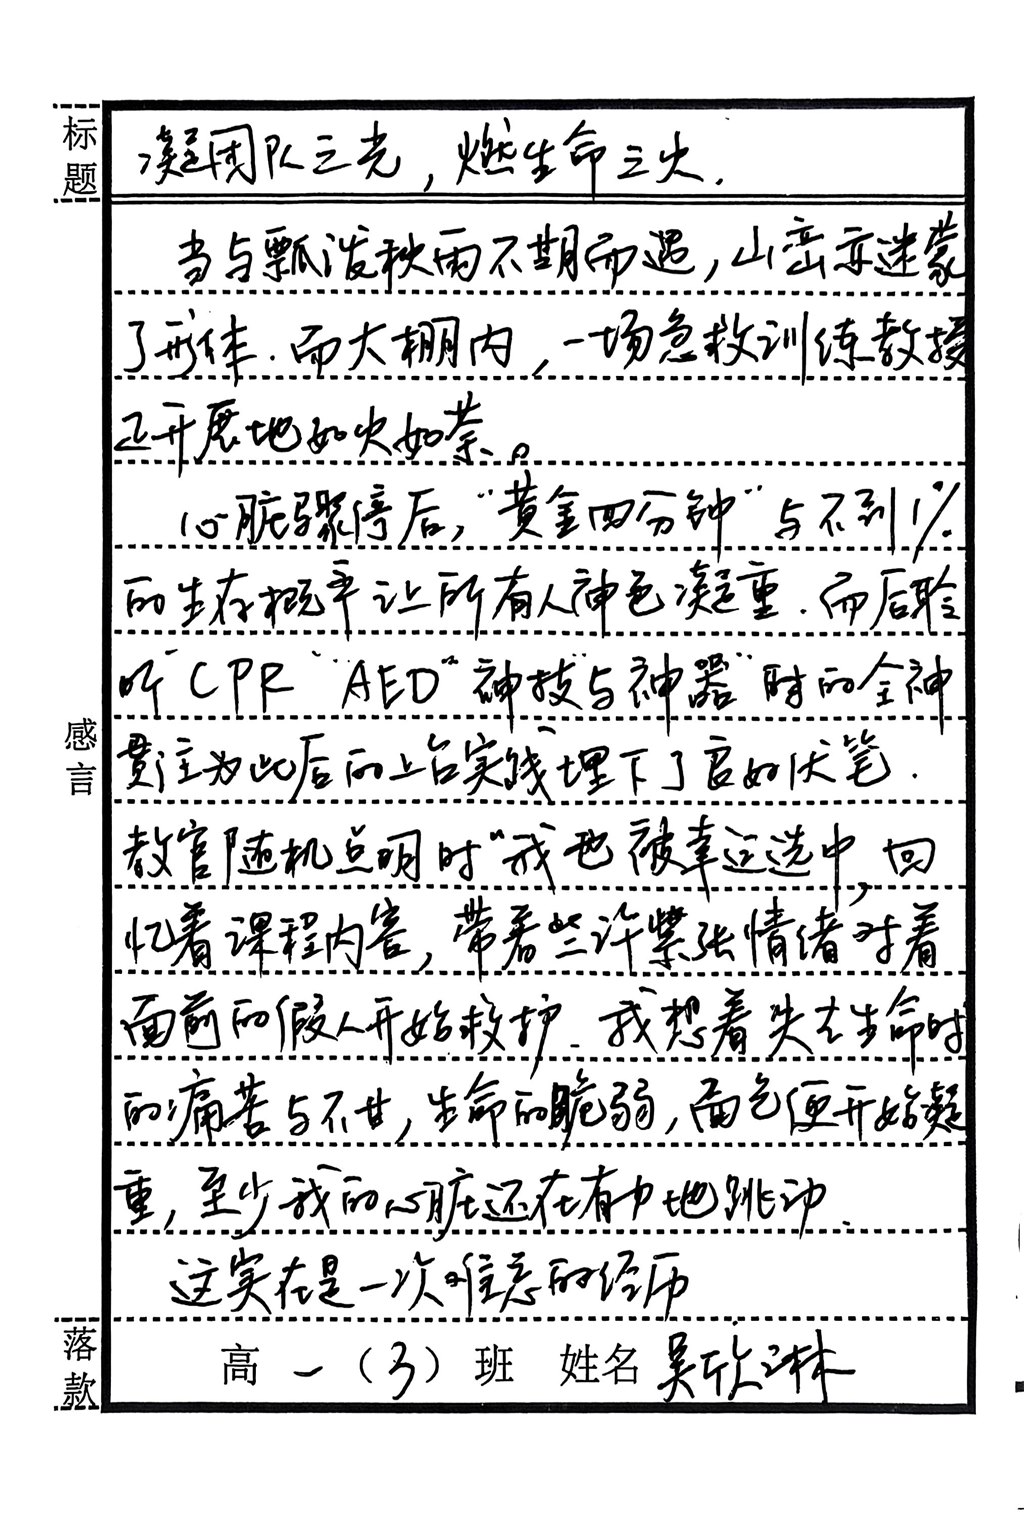 标题
凝团队之光，燃生命之火.
当与瓢泼秋雨不期而遇，山峦亦迷蒙
了形体.而大棚内，一场急救训练教授
正开展地如火如荼。
心脏骤停后，"黄金四分钟"与不到1%
的生存概率让所有人神色凝重.而后聆
听"CPR""AED""神技"与"神器"时的全神
贯注为此后的上台实践埋下了良好伏笔.
教官随机点明时"我也被幸运选中，回
忆着课程内容，带着些许紧张情绪对着
面前的假人开始救护.我想着失去生命时
的痛苦与不甘，生命的脆弱，面色便开始凝
重，至少我的心脏还在有力地跳动.
这实在是一次难忘的经历
感言
落款
高一（3）班 姓名 吴欣琳